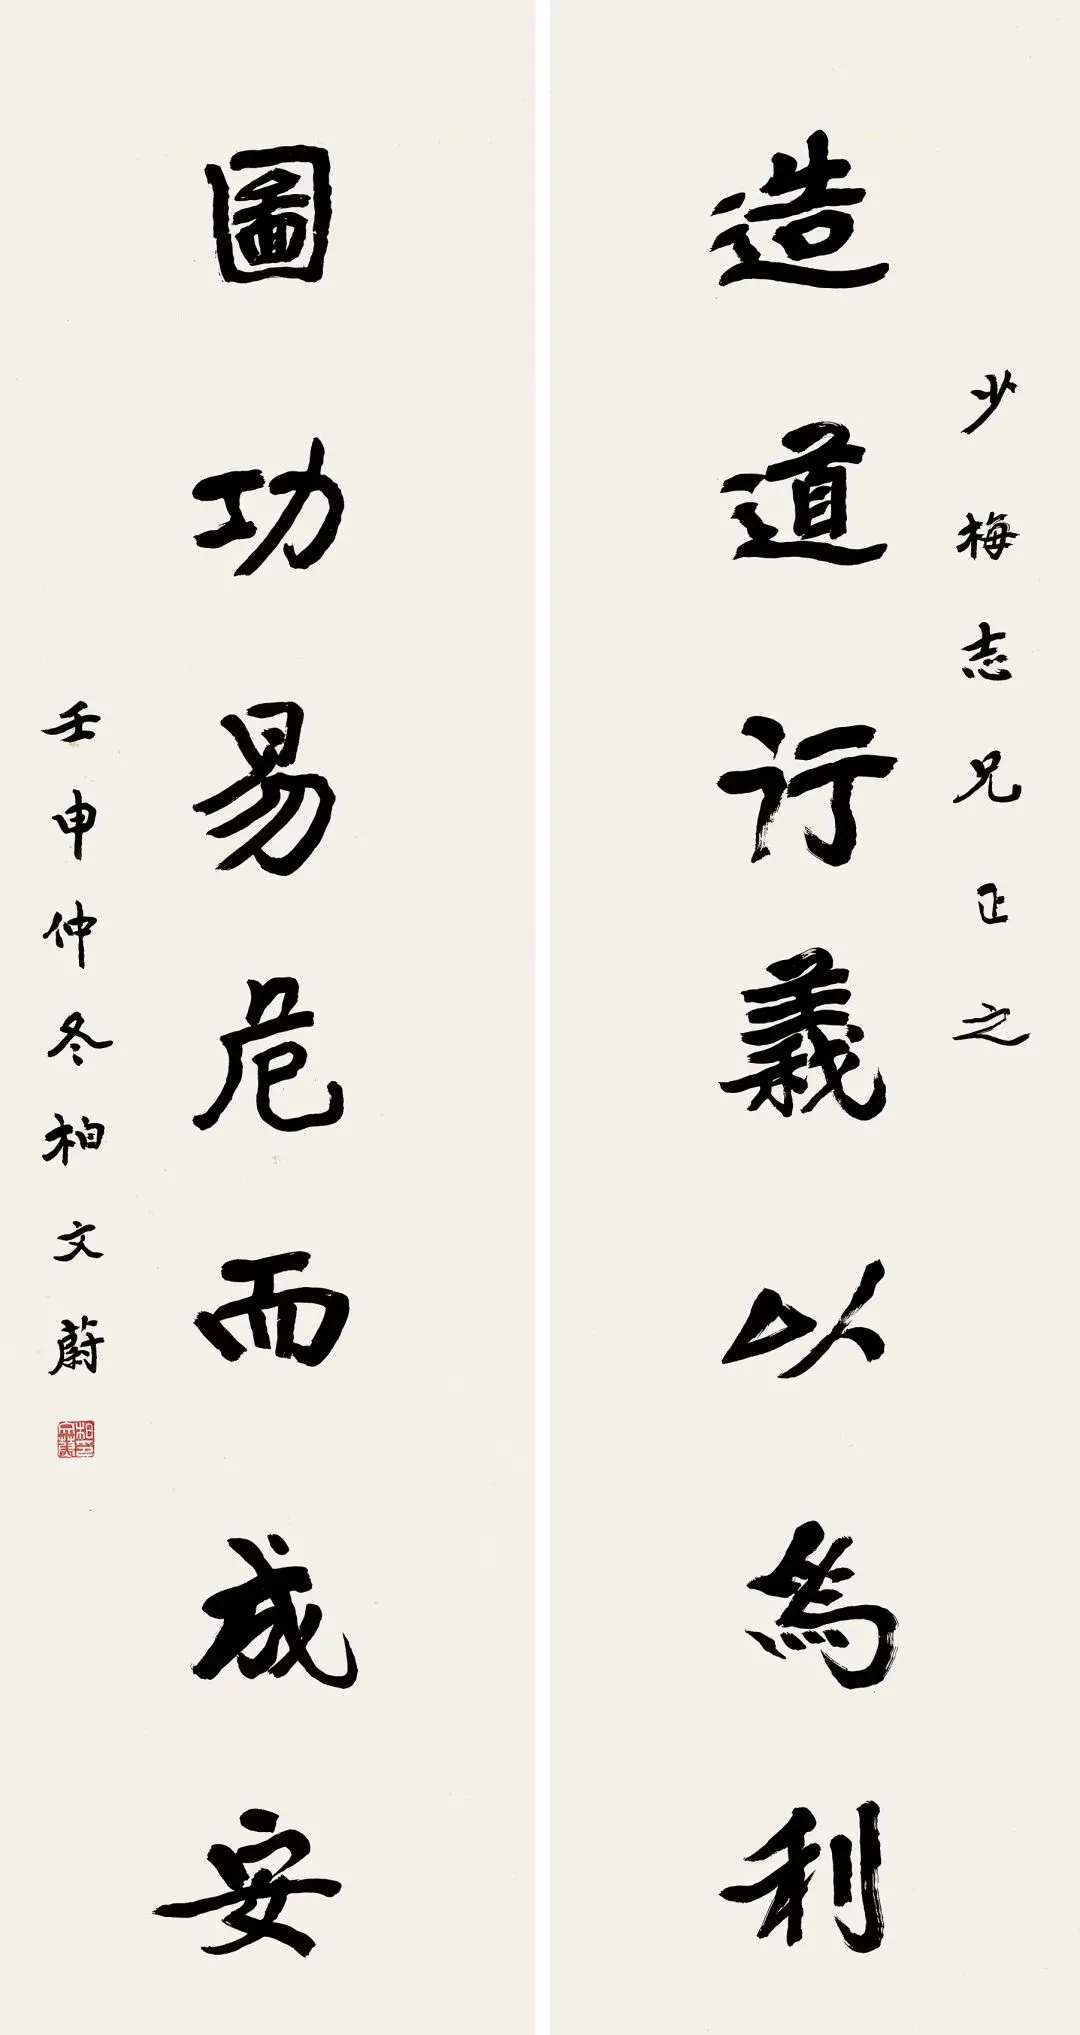 少梅志兄正之
造道行義以為利
圖功易危而成安
壬申仲冬柏文蔚